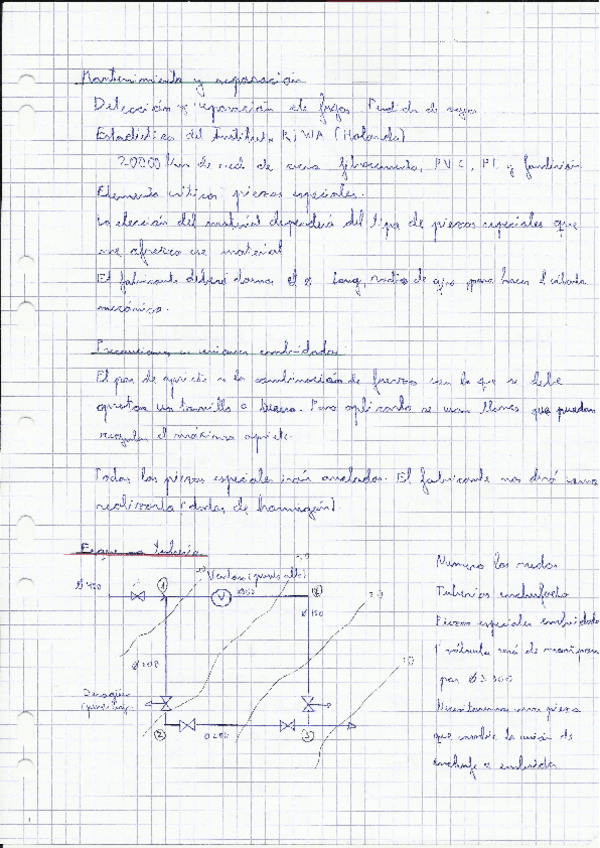 Mantenimiento y reparación
Detección y reparación de fugas. Perdida de agua
Estadística del Institut. KIWA (Holanda)
20000 km de red de acero, fibrocemento, PVC, PE y fundición
Elemento críticos piezas especiales.
La elección del material dependerá del tipo de piezas especiales que
me ofrezca ese material
El fabricante deberá darnos el Ø long, para hacer el cálculo
mecánico.
Precauciones en uniones embridadas
El par de apriete es la combinación de fuerzas con la que se debe
apretar un tornillo a tuerca. Para aplicarlo se usan llaves que puedan
regular el máximo apriete.
Todas las piezas especiales irán ancladas. El fabricante nos dirá como
realizarlo (dados de hormigón)
Esquema tubería
Ventosa (punto alto)
Numero los nudos
Ø 400
1
V
Ø 150
Tuberías enchufado
Piezas especiales embridadas
1ª válvula será de mariposa
por Ø ≥ 300
Desagüe
Necesitaremos una pieza
que cambie la unión de
2
3
enchufe a embridada